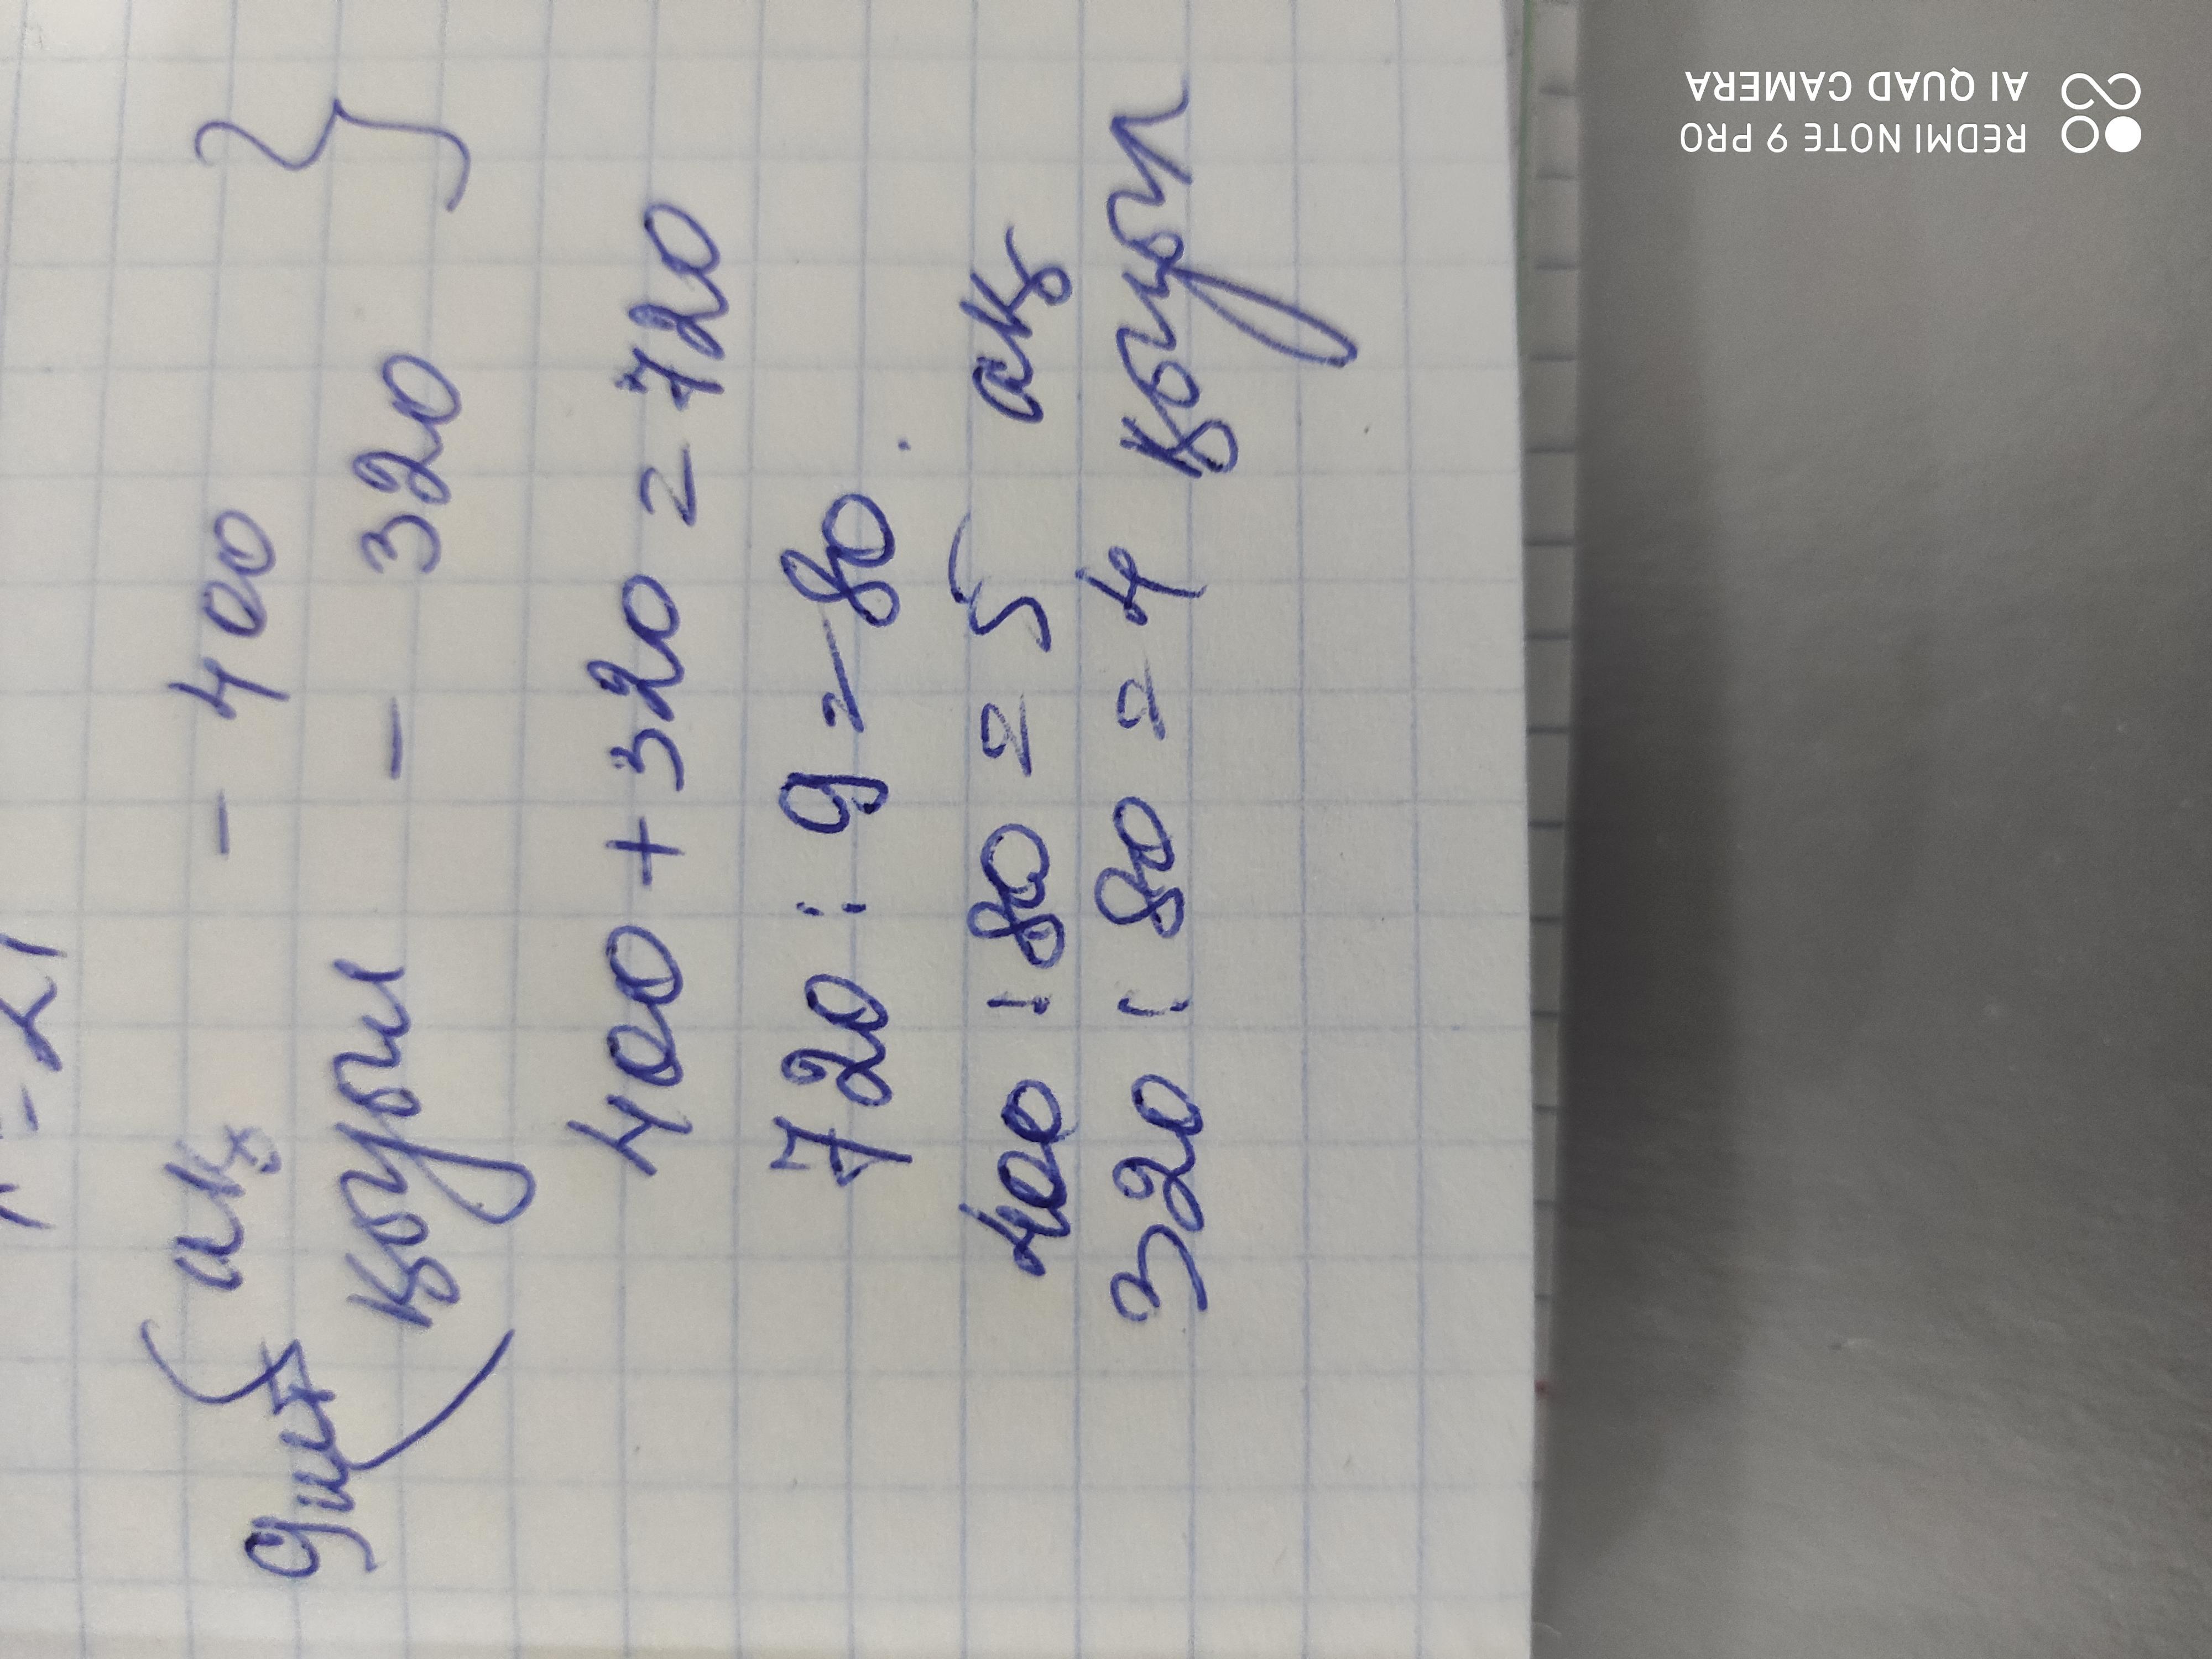 ақ - 400
9 шт
қоңыр - 320
400 + 320 = 720
720 : 9 = 80
400 : 80 = 5 ақ
320 : 80 = 4 қоңыр
REDMI NOTE 9 PRO
AI QUAD CAMERA